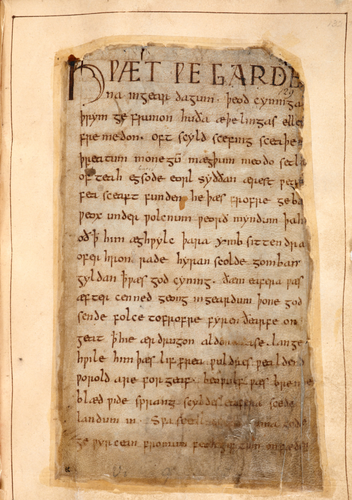 HǷÆT ǷE GARDE
na ingear dagum. þeod cyninga
þrym ge frunon huða æþelingas elle
fremedon. oft scyld scefing sceaþe
þreatum monegū mægþum meodo setla
of teah egsode eorl syððan ærest ƿear
fea sceaft funden he þæs frofre geba
ƿeox under ƿolcnum ƿeorð myndum þah
oð þ̄ him æghƿylc þara ymb sittendra
ofer hron rade hyran scolde gomban
gyldan þæt ƿæs god cyning. ðæm eafera ƿæs
æfter cenned geong ingeardum þone god
sende folce tofrofre fyren ðearfe on
geat þ̄ hie ær drugon aldor ase. lange
hƿile him þæs lif frea ƿuldres ƿealdend
ƿorold are for geaf. beoƿulf ƿæs breme
blæd ƿide sprang scyldes eafera scede
landum in. Sƿa sceal ma gode
ge ƿyrcean fromum feoh giftum on fæder